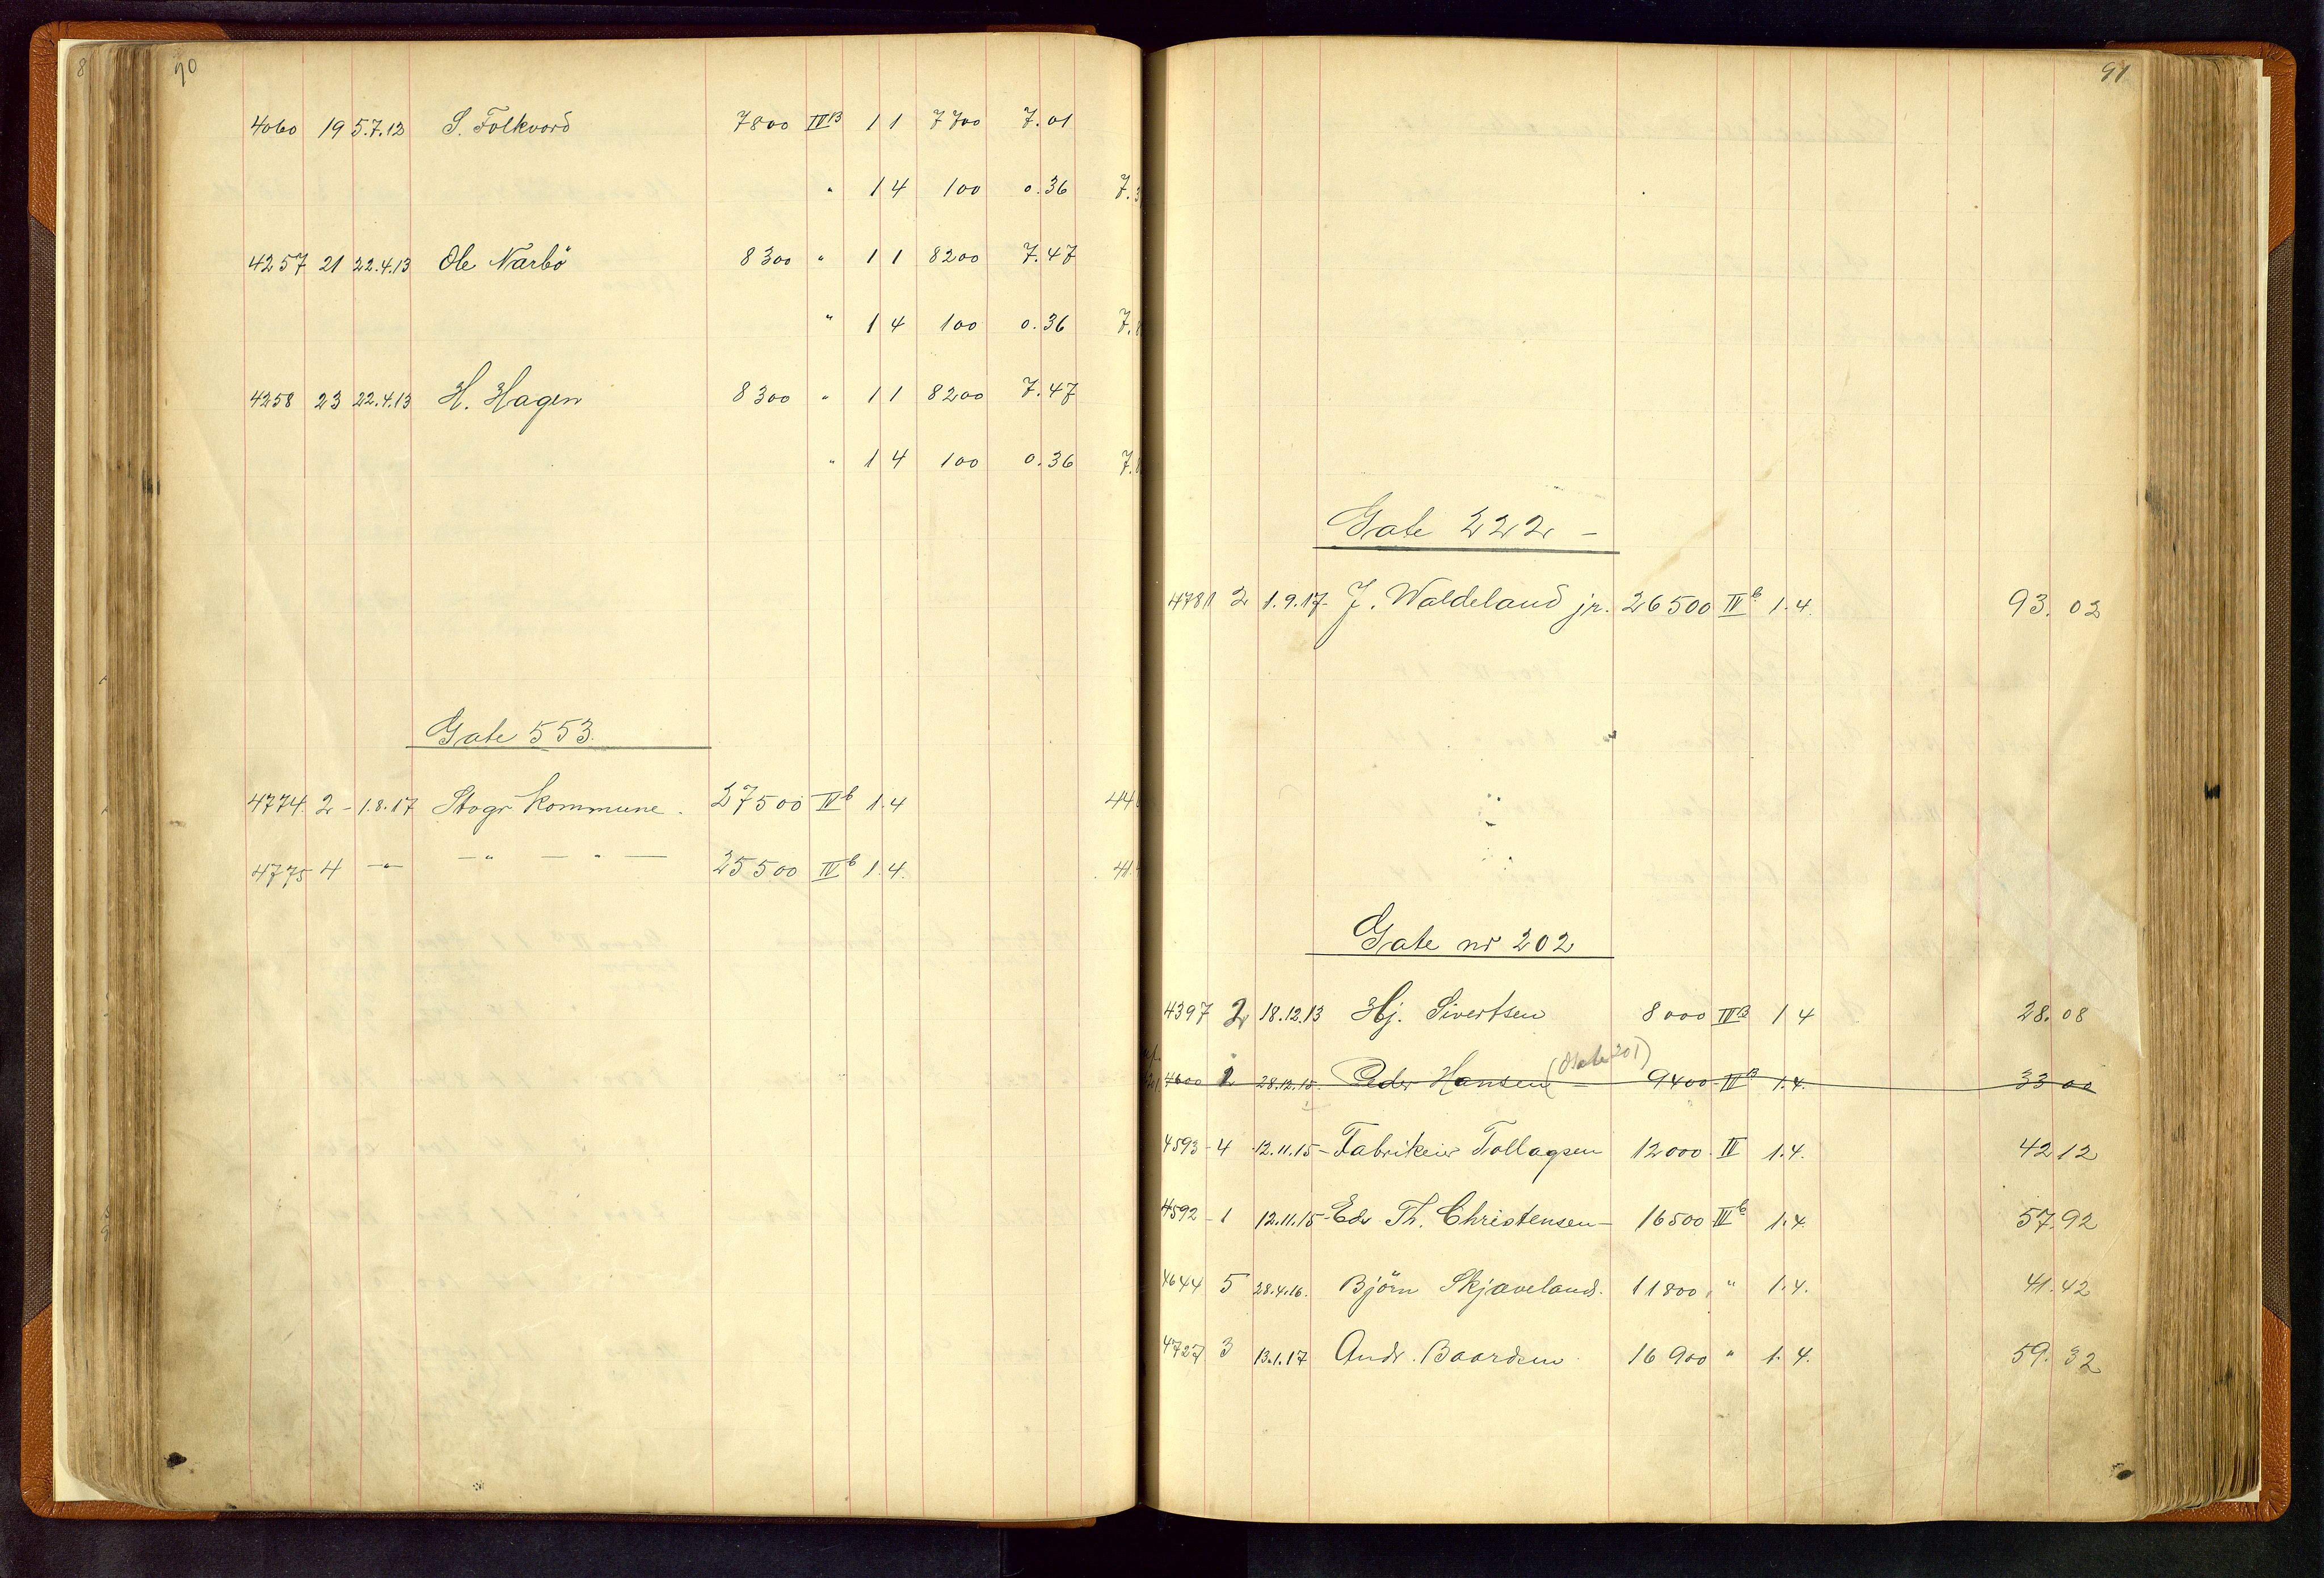 90
4060 19 5.7.12 S. Folkvord 7800 IVB 1 1 7700 7.01
" 1 4 100 0.36 7.
4257 21 22.4.13 Ole Narbö 8300 " 1 1 8200 7.47
" 1 4 100 0.36 7.
4258 23 22.4.13 H. Hagen 8300 " 1 1 8200 7.47
" 1 4 100 0.36 7.
Gate 553.
4774. 2 - 1.8.17 Stvgr Kommune. 27500 IVb 1.4 44
4775 4 -"- -"- -"- 25500 IVb 1.4. 41
91
Gate 222 -
4781 2 1.9.17- J. Waldeland jr. 26500 IVb 1.4. 93.02
Gate nr 202
4397 2 18.12.13 Hj. Sivertsen 8000 IVB 1 4 28.08
4600 1 28.12.15. Peder Hansen (Gate 201) - 9400 IVB 1.4. 33 00
4593 - 4 12.11.15 - Fabrikeier Tollagsen 12000 IV 1.4. 42 12
4592 - 1 12.11.15 - Edv Th. Christensen - 16500 IVb 1.4 57.92
4644 5 28.4.16. Björn Skjaveland. 11800, " 1.4. 41.42
4727 3 13.1.17 Andr. Baardsen 16900 " 1.4. 59.32